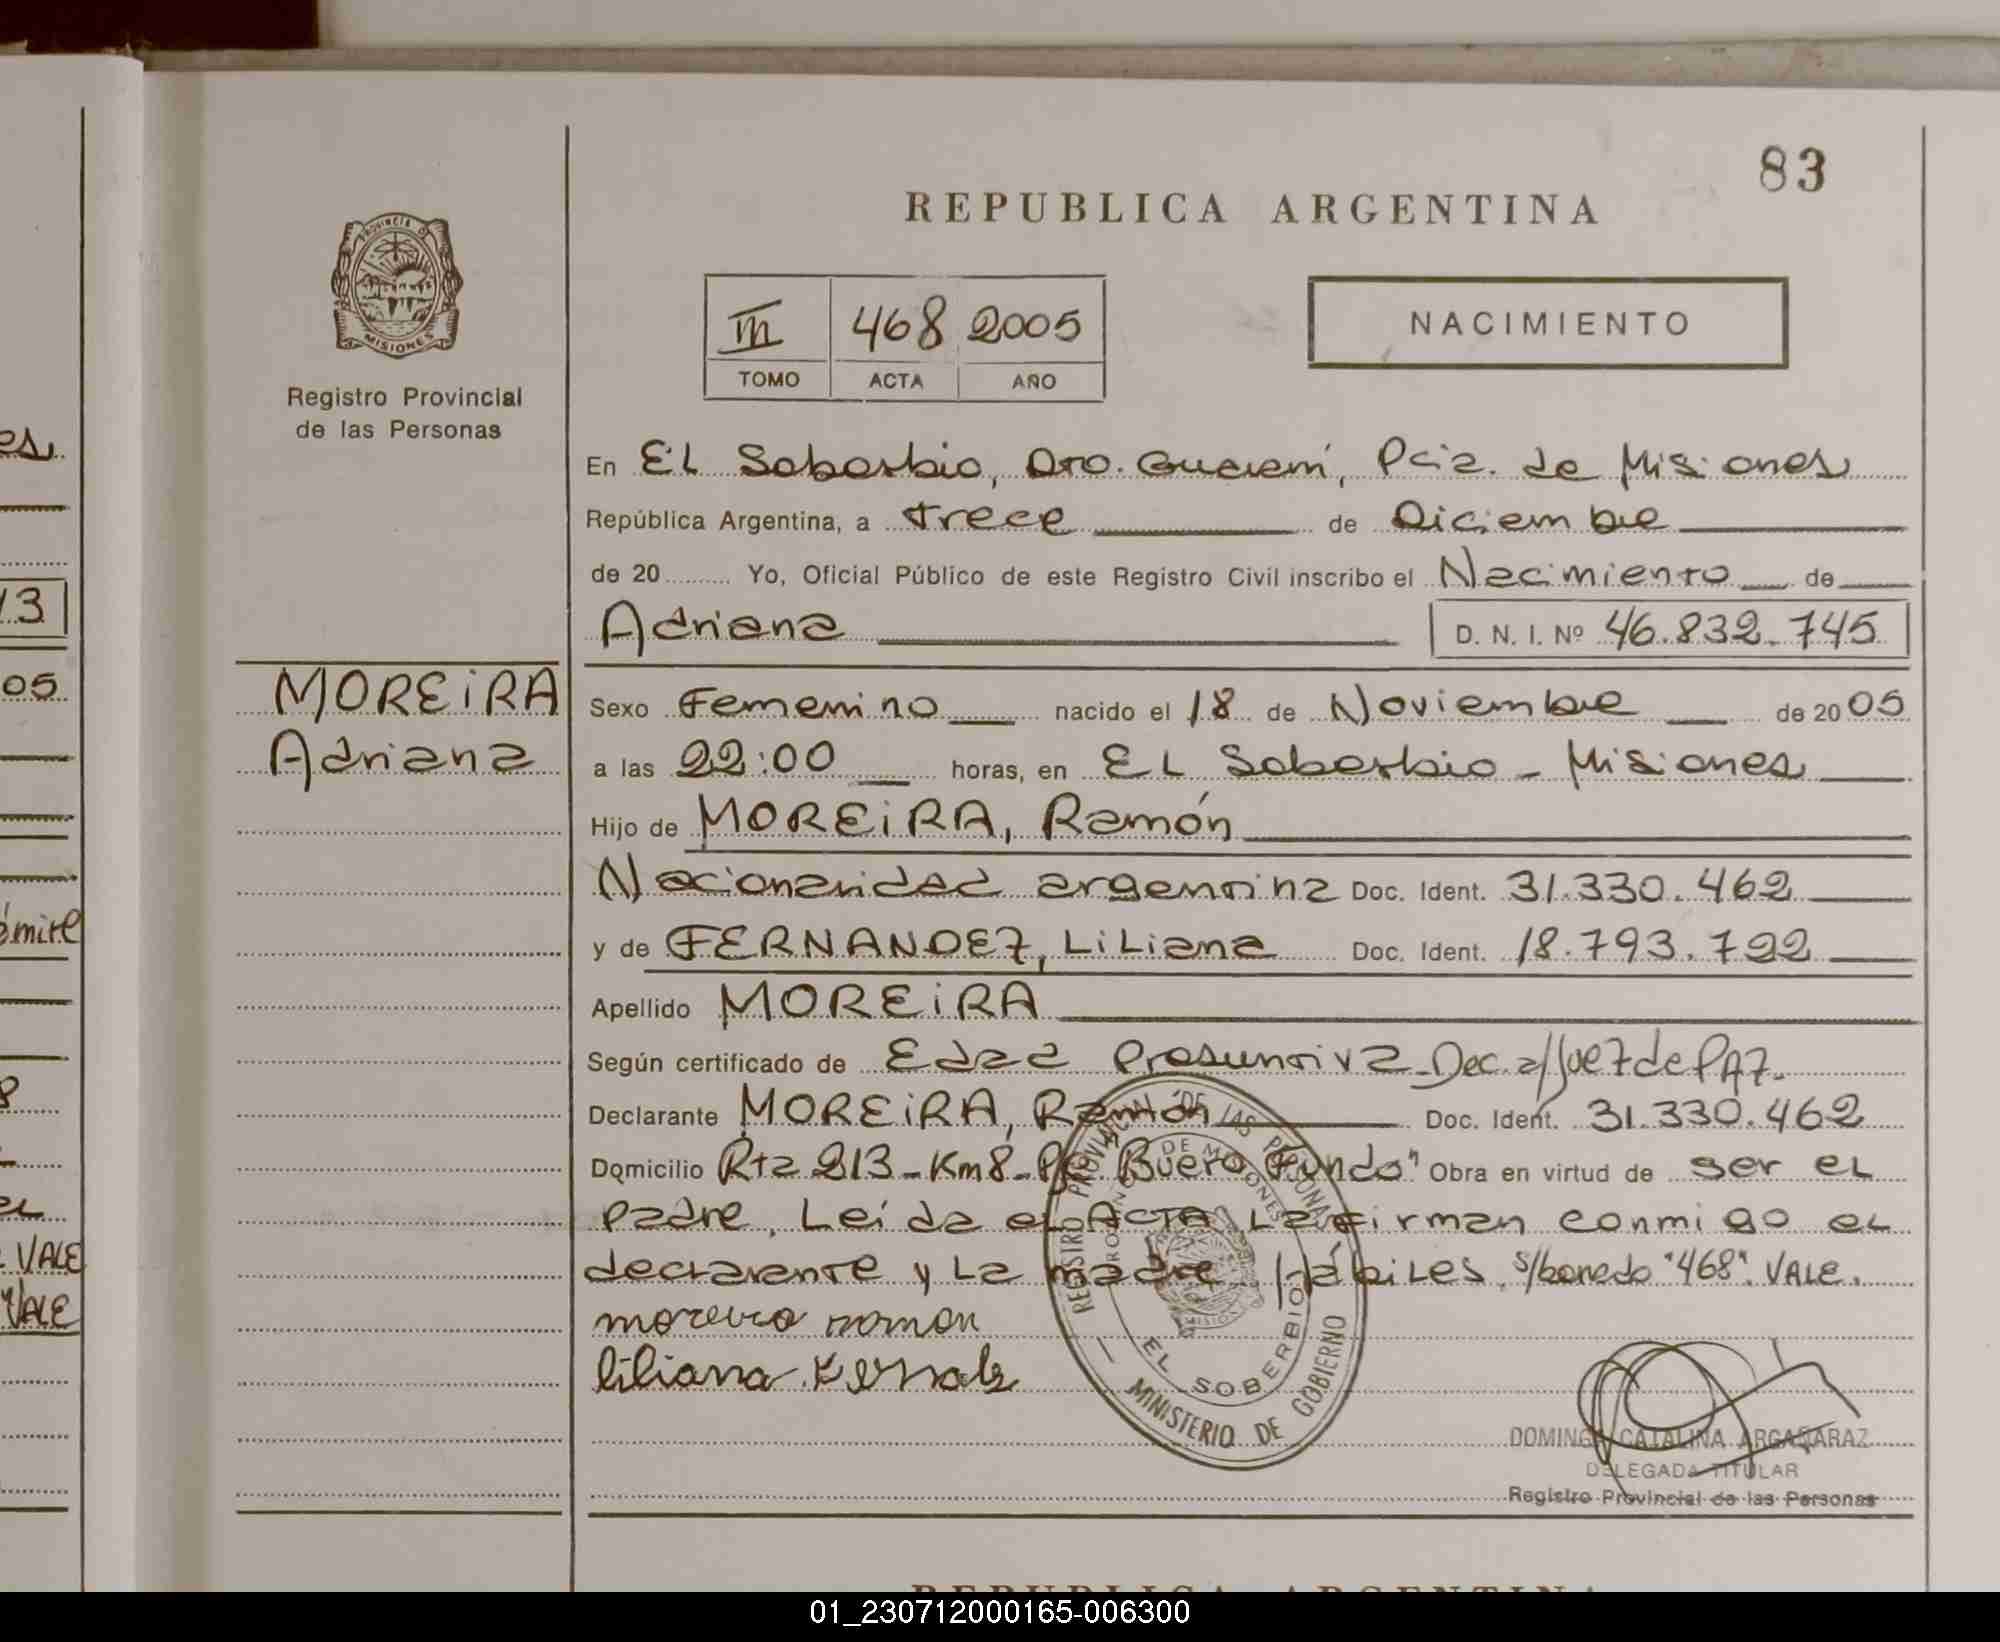 83
REPUBLICA ARGENTINA
PROVINCIA D
MISIONES
Registro Provincial
de las Personas
III 468 2005
TOMO ACTA AÑO
NACIMIENTO
En EL Soberbio, Dto. Guaraní, Pcia. de Misiones
República Argentina, a trece de Diciembre
de 20 Yo, Oficial Público de este Registro Civil inscribo el Nacimiento de
Adriana D. N. I. Nº 46.832.745
MOREIRA
Adriana
Sexo Femenino nacido el 18 de Noviembre de 20 05
a las 22:00 horas, en EL Soberbio - Misiones
Hijo de MOREIRA, Ramón
Nacionalidad argentina Doc. Ident. 31.330.462
y de FERNANDEZ, Liliana Doc. Ident. 18.793.722
Apellido MOREIRA
Según certificado de Edad Presuntiva - Dec. a/Juez de PAZ.
Declarante MOREIRA, Ramón Doc. Ident. 31.330.462
Domicilio Rta 213 - Km 8 - Fundo" Obra en virtud de ser el
padre, Leída el ACTA La firman conmigo el
declarante y La madre Hábiles. s/borrado "468". VALE.
moreira ramon
liliana
REGISTRO PROVINCIAL DE LAS PERSONAS
MINISTERIO DE GOBIERNO
DE MISIONES
EL SOBERBIO
DOMINGA CATALINA ARGAÑARAZ
DELEGADA TITULAR
Registro Provincial de las Personas
13
05
VALE
VALE
REPUBLICA ARGENTINA
01_230712000165-006300